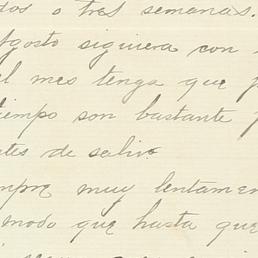 dos o tres semanas.
Agosto siguiera con
el mes tenga que
tiempo son bastante
antes de salir
muy lentamen
modo que hasta que